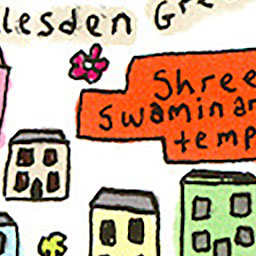 lesden Gre
Shree
Swaminar
temp